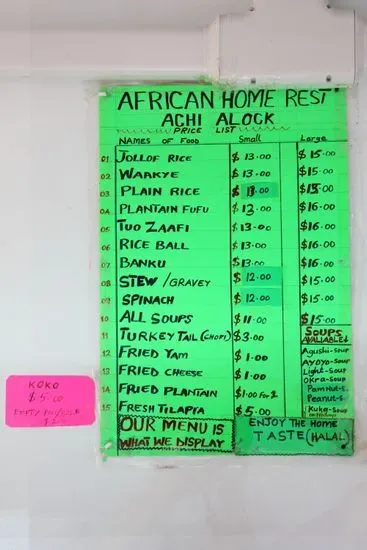 AFRICAN HOME REST
ACHI ALOCK
PRICE LIST
NAMES OF FOOD Small Large
01. JOLLOF RICE $13.00 $15.00
02 WAAKYE $13.00 $15.00
03 PLAIN RICE $13.00 $15.00
04 PLANTAIN FUFU $13.00 $16.00
05 TUO ZAAFI $13.00 $16.00
06 RICE BALL $13.00 $16.00
07 BANKU $13.00 $16.00
08 STEW/GRAVEY $12.00 $15.00
09 SPINACH $12.00 $15.00
10 ALL SOUPS $11.00 $15.00
11 TURKEY TAIL (CHOFI) $3.00
12 FRIED YAM $1.00
13 FRIED CHEESE $1.00
14 FRIED PLANTAIN $1.00 FOR 2
15 FRESH TILAPIA $5.00
SOUPS
AVALIABLE
Agushi-Soup
Ayoyo-Soup
Light-Soup
Okra-Soup
Palm Nut-S.
Peanut-S.
Kuka-Soup
OUR MENU IS
WHAT WE DISPLAY
ENJOY THE HOME
TASTE (HALAL)
KOKO
$5.00